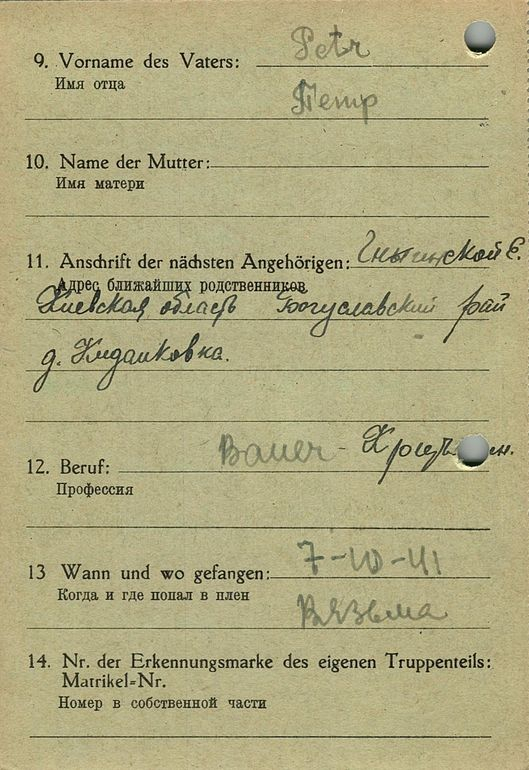 Petr
9. Vorname des Vaters:
Имя отца
Петр
10. Name der Mutter:
Имя матери
11. Anschrift der nächsten Angehörigen:
Адрес ближайших родственников
Киевская область Богуславский рай
д.
12. Beruf: Bauer -
Профессия
7-10-41
13 Wann und wo gefangen:
Когда и где попал в плен
Вязьма
14. Nr. der Erkennungsmarke des eigenen Truppenteils:
Matrikel-Nr.
Номер в собственной части